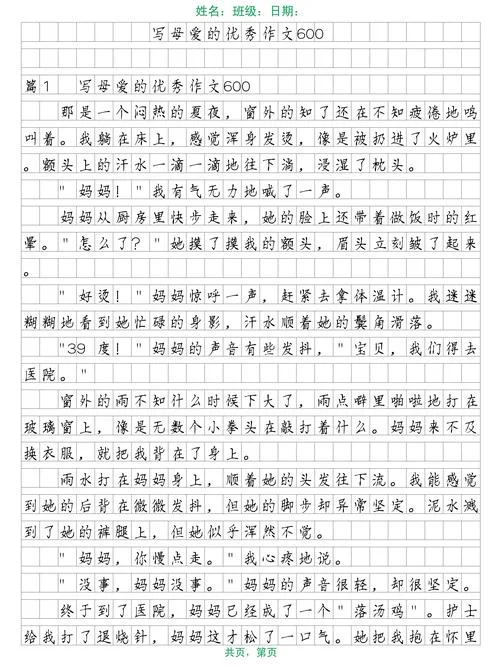 姓名：班级：日期：
写母爱的优秀作文600
篇1 写母爱的优秀作文600
那是一个闷热的夏夜，窗外的知了还在不知疲倦地鸣
叫着。我躺在床上，感觉浑身发烫，像是被扔进了火炉里
。额头上的汗水一滴一滴地往下淌，浸湿了枕头。
"妈妈！"我有气无力地喊了一声。
妈妈从厨房里快步走来，她的脸上还带着做饭时的红
晕。"怎么了？"她摸了摸我的额头，眉头立刻皱了起来
。
"好烫！"妈妈惊呼一声，赶紧去拿体温计。我迷迷
糊糊地看到她忙碌的身影，汗水顺着她的鬓角滑落。
"39度！"妈妈的声音有些发抖，"宝贝，我们得去
医院。"
窗外的雨不知什么时候下大了，雨点噼里啪啦地打在
玻璃窗上，像是无数个小拳头在敲打着什么。妈妈来不及
换衣服，就把我背在了身上。
雨水打在妈妈身上，顺着她的头发往下流。我能感觉
到她的后背在微微发抖，但她的脚步却异常坚定。泥水溅
到了她的裤腿上，但她似乎浑然不觉。
"妈妈，你慢点走。"我心疼地说。
"没事，妈妈没事。"妈妈的声音很轻，却很坚定。
终于到了医院，妈妈已经成了一个"落汤鸡"。护士
给我打了退烧针，妈妈这才松了一口气。她把我抱在怀里
共页，第页